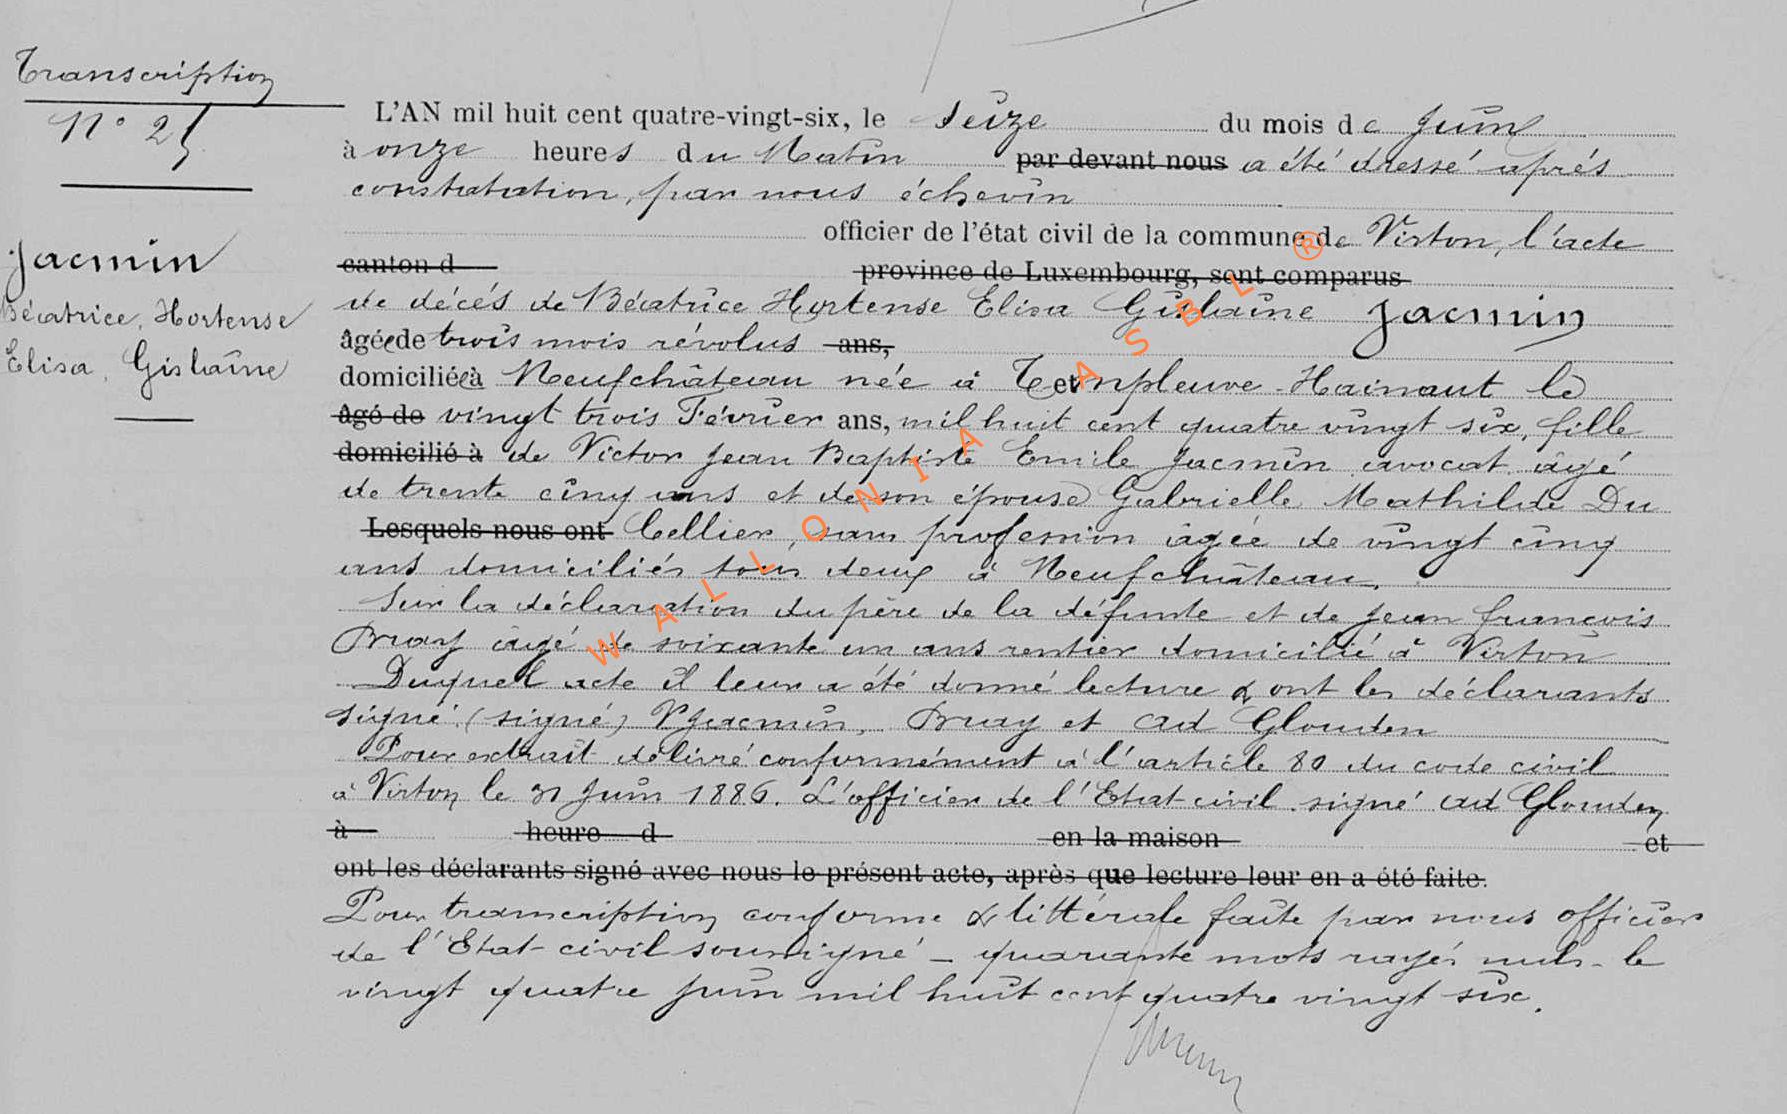 Transcription
N° 25
Jacmin
Béatrice, Hortense
Elisa, Gislaine
L'AN mil huit cent quatre-vingt-six, le Seize du mois de Juin
à onze heures du Matin par devant nous a été dressé aprés
constatation, par nous échevin
officier de l'état civil de la commune de Virton, l'acte
canton d province de Luxembourg, sont comparus
de décés de Béatrice Hortense Elisa Gislaine Jacmin
âgée de trois mois révolus ans,
domiciliée à Neufchâteau née à Templeuve Hainaut le
âgé de vingt trois Février ans, mil huit cent quatre vingt six, fille
domicilié à de Victor Jean Baptiste Emile Jacmin avocat âgé
de trente cinq ans et de son épouse Gabrielle Mathilde Du
Lesquels nous ont Cellier, sans profession âgée de vingt cinq
ans domiciliés tous deux à Neufchâteau.
Sur la déclaration du père de la défunte et de Jean francois
Bruay âgé de soixante un ans rentier domicilié à Virton
Duquel acte il leur a été donné lecture & ont les déclarants
signé. (signé) V Jacmin, Bruay et Ad Glouden
Pour extrait délivré conformément à l'article 80 du code civil
à Virton le 21 Juin 1886. L'officier de l'Etat civil signé Ad Glouden
à heure d en la maison et
ont les déclarants signé avec nous le présent acte, après que lecture leur en a été faite.
Pour transcription conforme & littérale faite par nous officier
de l'Etat civil soussigné - quarante mots rayés nuls - le
vingt quatre Juin mil huit cent quatre vingt six.
WALLONIA ASBL ®